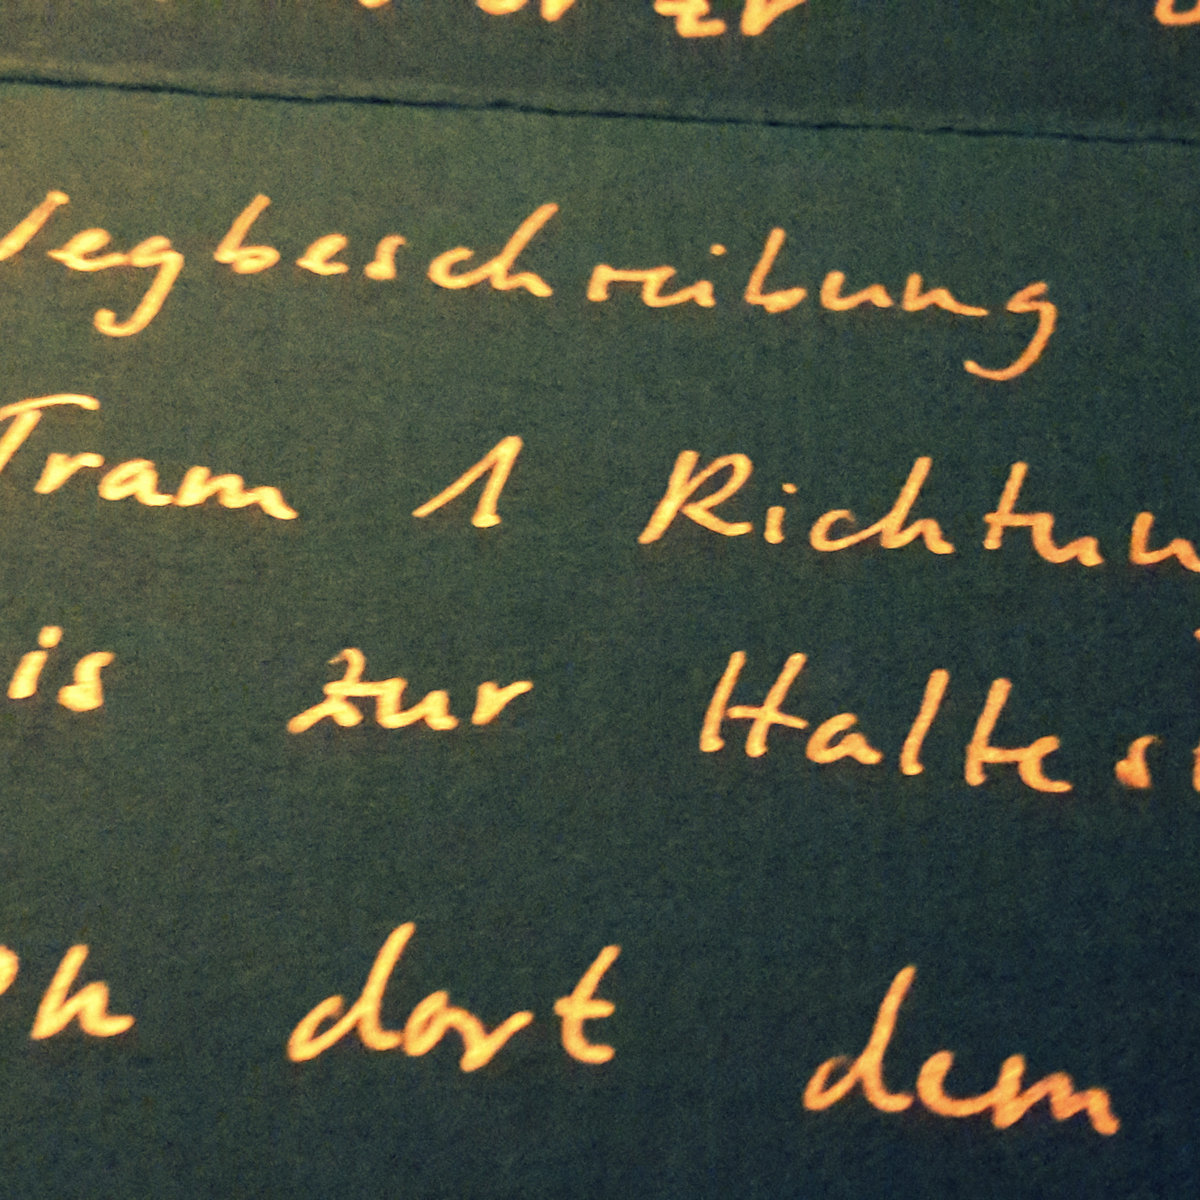 Wegbeschreibung
Tram 1 Richtun
is zur Haltest
on dort dem